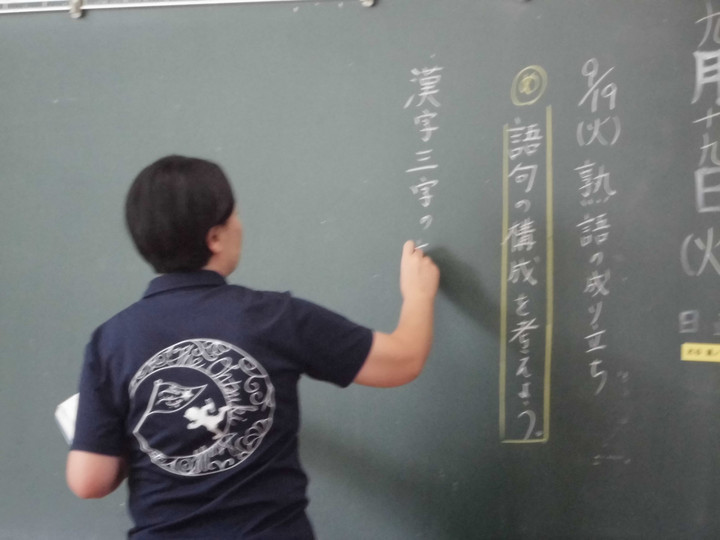 九月十九日(火)
日
9/19(火) 熟語の成り立ち
め 語句の構成を考えよう。
漢字三字の